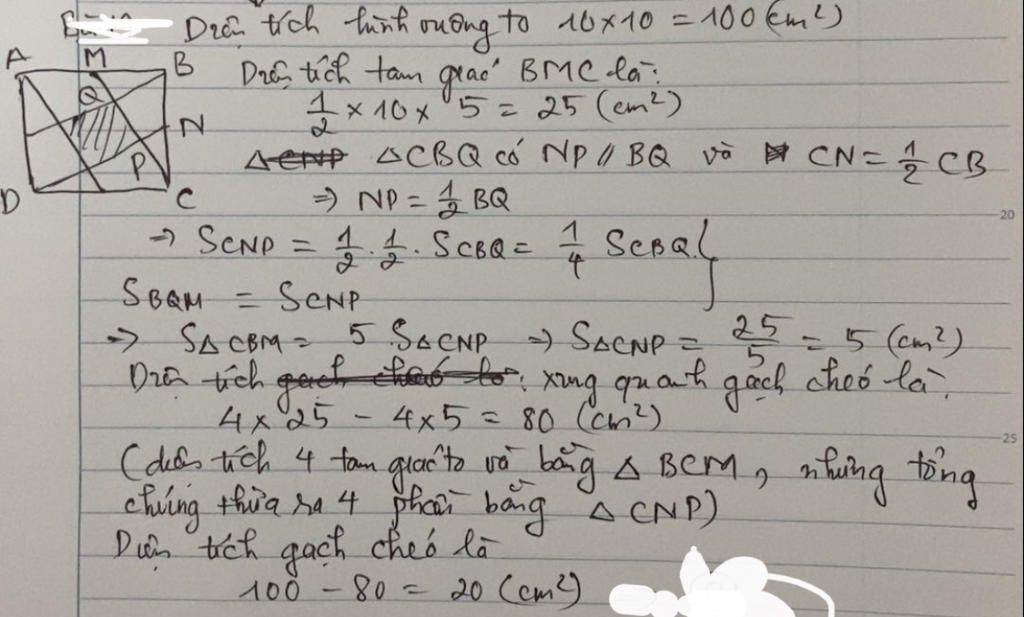 Diện tích hình vuông to 10×10 = 100 (cm²)
A M B
Diện tích tam giác BMC là:
Q
1/2 × 10 × 5 = 25 (cm²)
N
△CNP △CBQ có NP // BQ và CN = 1/2 CB
P
D C
⇒ NP = 1/2 BQ
20
⇒ SCNP = 1/2 . 1/2 . SCBQ = 1/4 SCBQ }
SBQM = SCNP
⇒ S△CBM = 5 S△CNP ⇒ S△CNP = 25/5 = 5 (cm²)
Diện tích gạch chéo là: xung quanh gạch chéo là:
4 × 25 − 4 × 5 = 80 (cm²)
25
(diện tích 4 tam giác to và bằng △ BCM, nhưng tổng
chúng thừa ra 4 phần bằng △ CNP)
Diện tích gạch chéo là
100 − 80 = 20 (cm²)